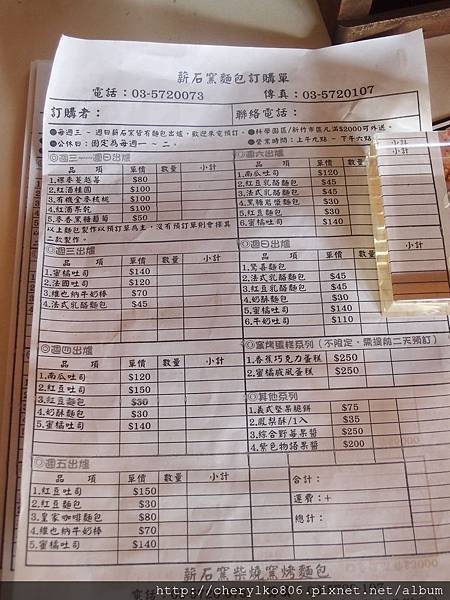 薪石窯麵包訂購單
電話：03-5720073 傳真：03-5720107
訂購者： 聯絡電話：
●每週三－週日薪石窯皆有麵包出爐，歡迎來電預訂。
●公休日：固定為每週一、二。
●科學園區/新竹市區凡滿$2000可外送。
●營業時間：上午九點－下午六點
◎週三－週日出爐
品 項 單價 數量 小計
1.裸麥蔓越莓 $80
2.紅酒桂圓 $100
3.有機全麥核桃 $100
4.紅酒果乾 $100
5.麥香黑糖葡萄 $50
以上麵包製作以預訂單為主，沒有預訂單則會擇其
二款製作。
◎週三出爐
品 項 單價 數量 小計
1.蜜橘吐司 $140
2.法國吐司 $120
3.維也納牛奶棒 $70
4.法式乳酪麵包 $45
◎週四出爐
品 項 單價 數量 小計
1.南瓜吐司 $120
2.紅豆吐司 $150
3.紅豆麵包 $30
4.奶酥麵包 $30
5.蜜橘吐司 $140
◎週五出爐
品 項 單價 數量 小計
1.紅豆吐司 $150
2.紅豆麵包 $30
3.皇家咖啡麵包 $80
4.維也納牛奶棒 $70
5.蜜橘吐司 $140
◎週六出爐
品 項 單價 數量 小計
1.南瓜吐司 $120
2.紅豆乳酪麵包 $45
3.法式乳酪麵包 $45
4.黑糖葡萄麵包 $50
5.紅豆麵包 $30
6.蜜橘吐司 $140
◎週日出爐
品 項 單價 數量 小計
1.驚喜麵包
2.法式乳酪麵包 $45
3.紅豆乳酪麵包 $45
4.奶酥麵包 $30
5.蜜橘吐司 $140
6.牛奶吐司 $110
◎窯烤蛋糕系列(不限定，需提前二天預訂)
1.香蕉巧克力蛋糕 $250
2.蜜橘戚風蛋糕 $250
◎其他系列
1.義式堅果脆餅 $75
2.鳳梨酥/1入 $35
3.綜合野莓果醬 $250
4.紫色物語果醬 $200
合計：
運費：+
總計：
薪石窯柴燒窯烤麵包
小計
小計
小計
http://cherylko806.pixnet.net/album